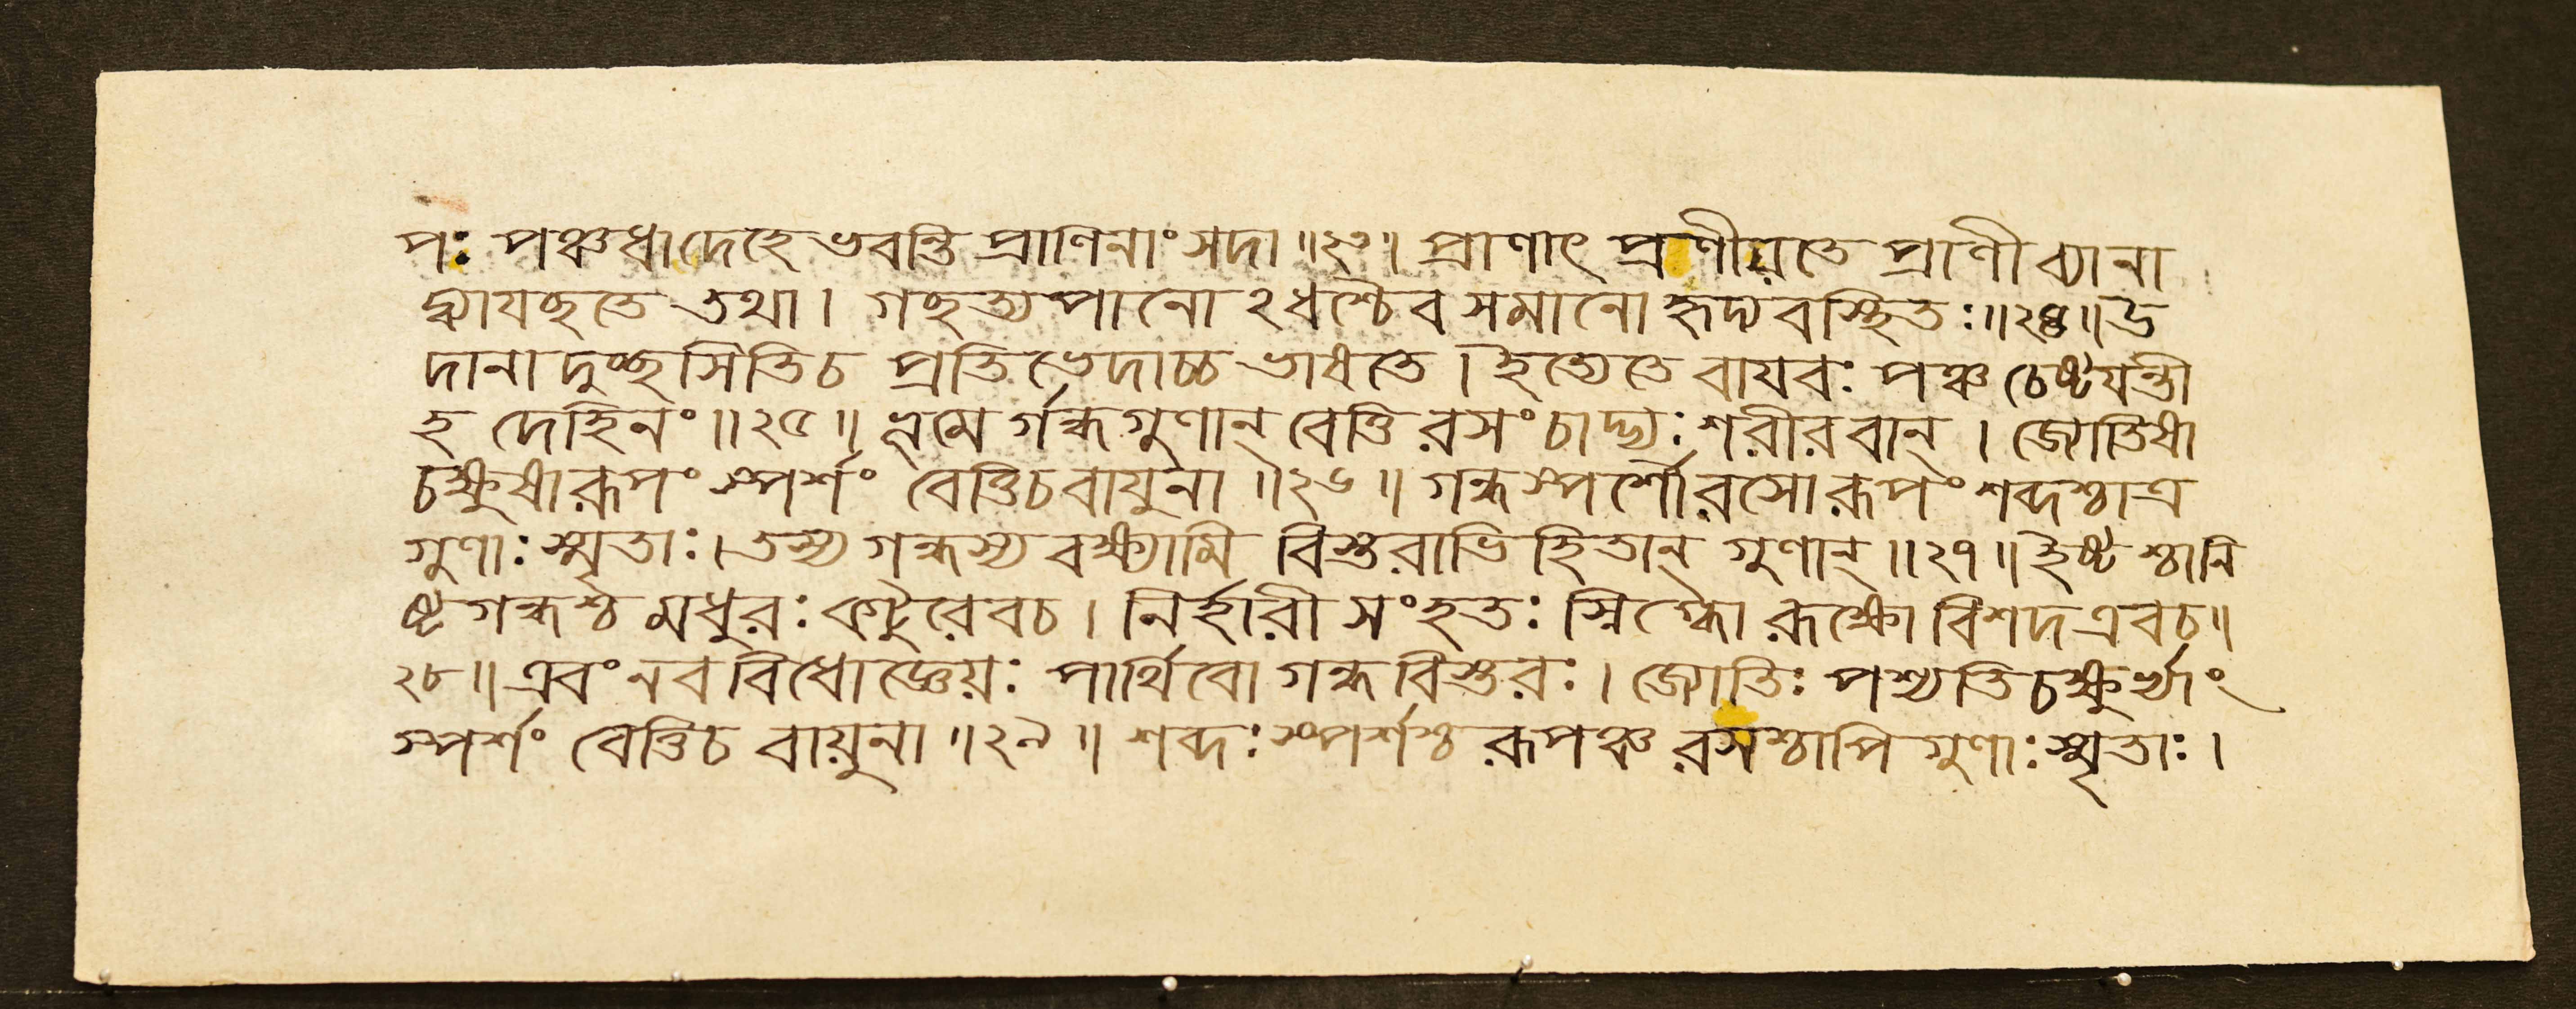 পঃ পঞ্চধাদেহে ভবন্তি প্রাণিনাং সদা ॥২৩॥ প্রাণাৎ প্রণীয়তে প্রাণী ব্যানা
দ্ব্যাযছতে তথা। গছত্যপানোঽধশ্চৈব সমানো হৃদ্যবস্থিতঃ॥২৪॥উ
দানাদুচ্ছ্বসিতিচ প্রতিভেদাচ্চ ভাষতে। ইত্যেতে বাযবঃ পঞ্চ চেষ্টযন্তী
হ দেহিনং॥২৫॥ ভূমের্গন্ধগুণান্ বেত্তি রসং চাদ্ভ্যঃ শরীরবান্। জ্যোতিষা
চক্ষুষারূপং স্পর্শং বেত্তিচবায়ুনা॥২৬॥ গন্ধস্পর্শৌরসোরূপং শব্দশ্চাত্র
গুণাঃ স্মৃতাঃ। তস্য গন্ধস্য বক্ষ্যামি বিস্তরাভিহিতান্ গুণান্॥২৭॥ইষ্টশ্চানি
ষ্টগন্ধশ্চ মধুরঃ কটুরেবচ। নির্হারী সংহতঃ স্নিগ্ধো রূক্ষো বিশদএবচ॥
২৮॥এবং নববিধোজ্ঞেয়ঃ পার্থিবো গন্ধবিস্তরঃ। জ্যোতিঃ পশ্যতি
স্পর্শং বেত্তিচ বায়ুনা॥২৯॥ শব্দঃ স্পর্শশ্চ রূপঞ্চ রসশ্চাপি গুণাঃ স্মৃতাঃ।